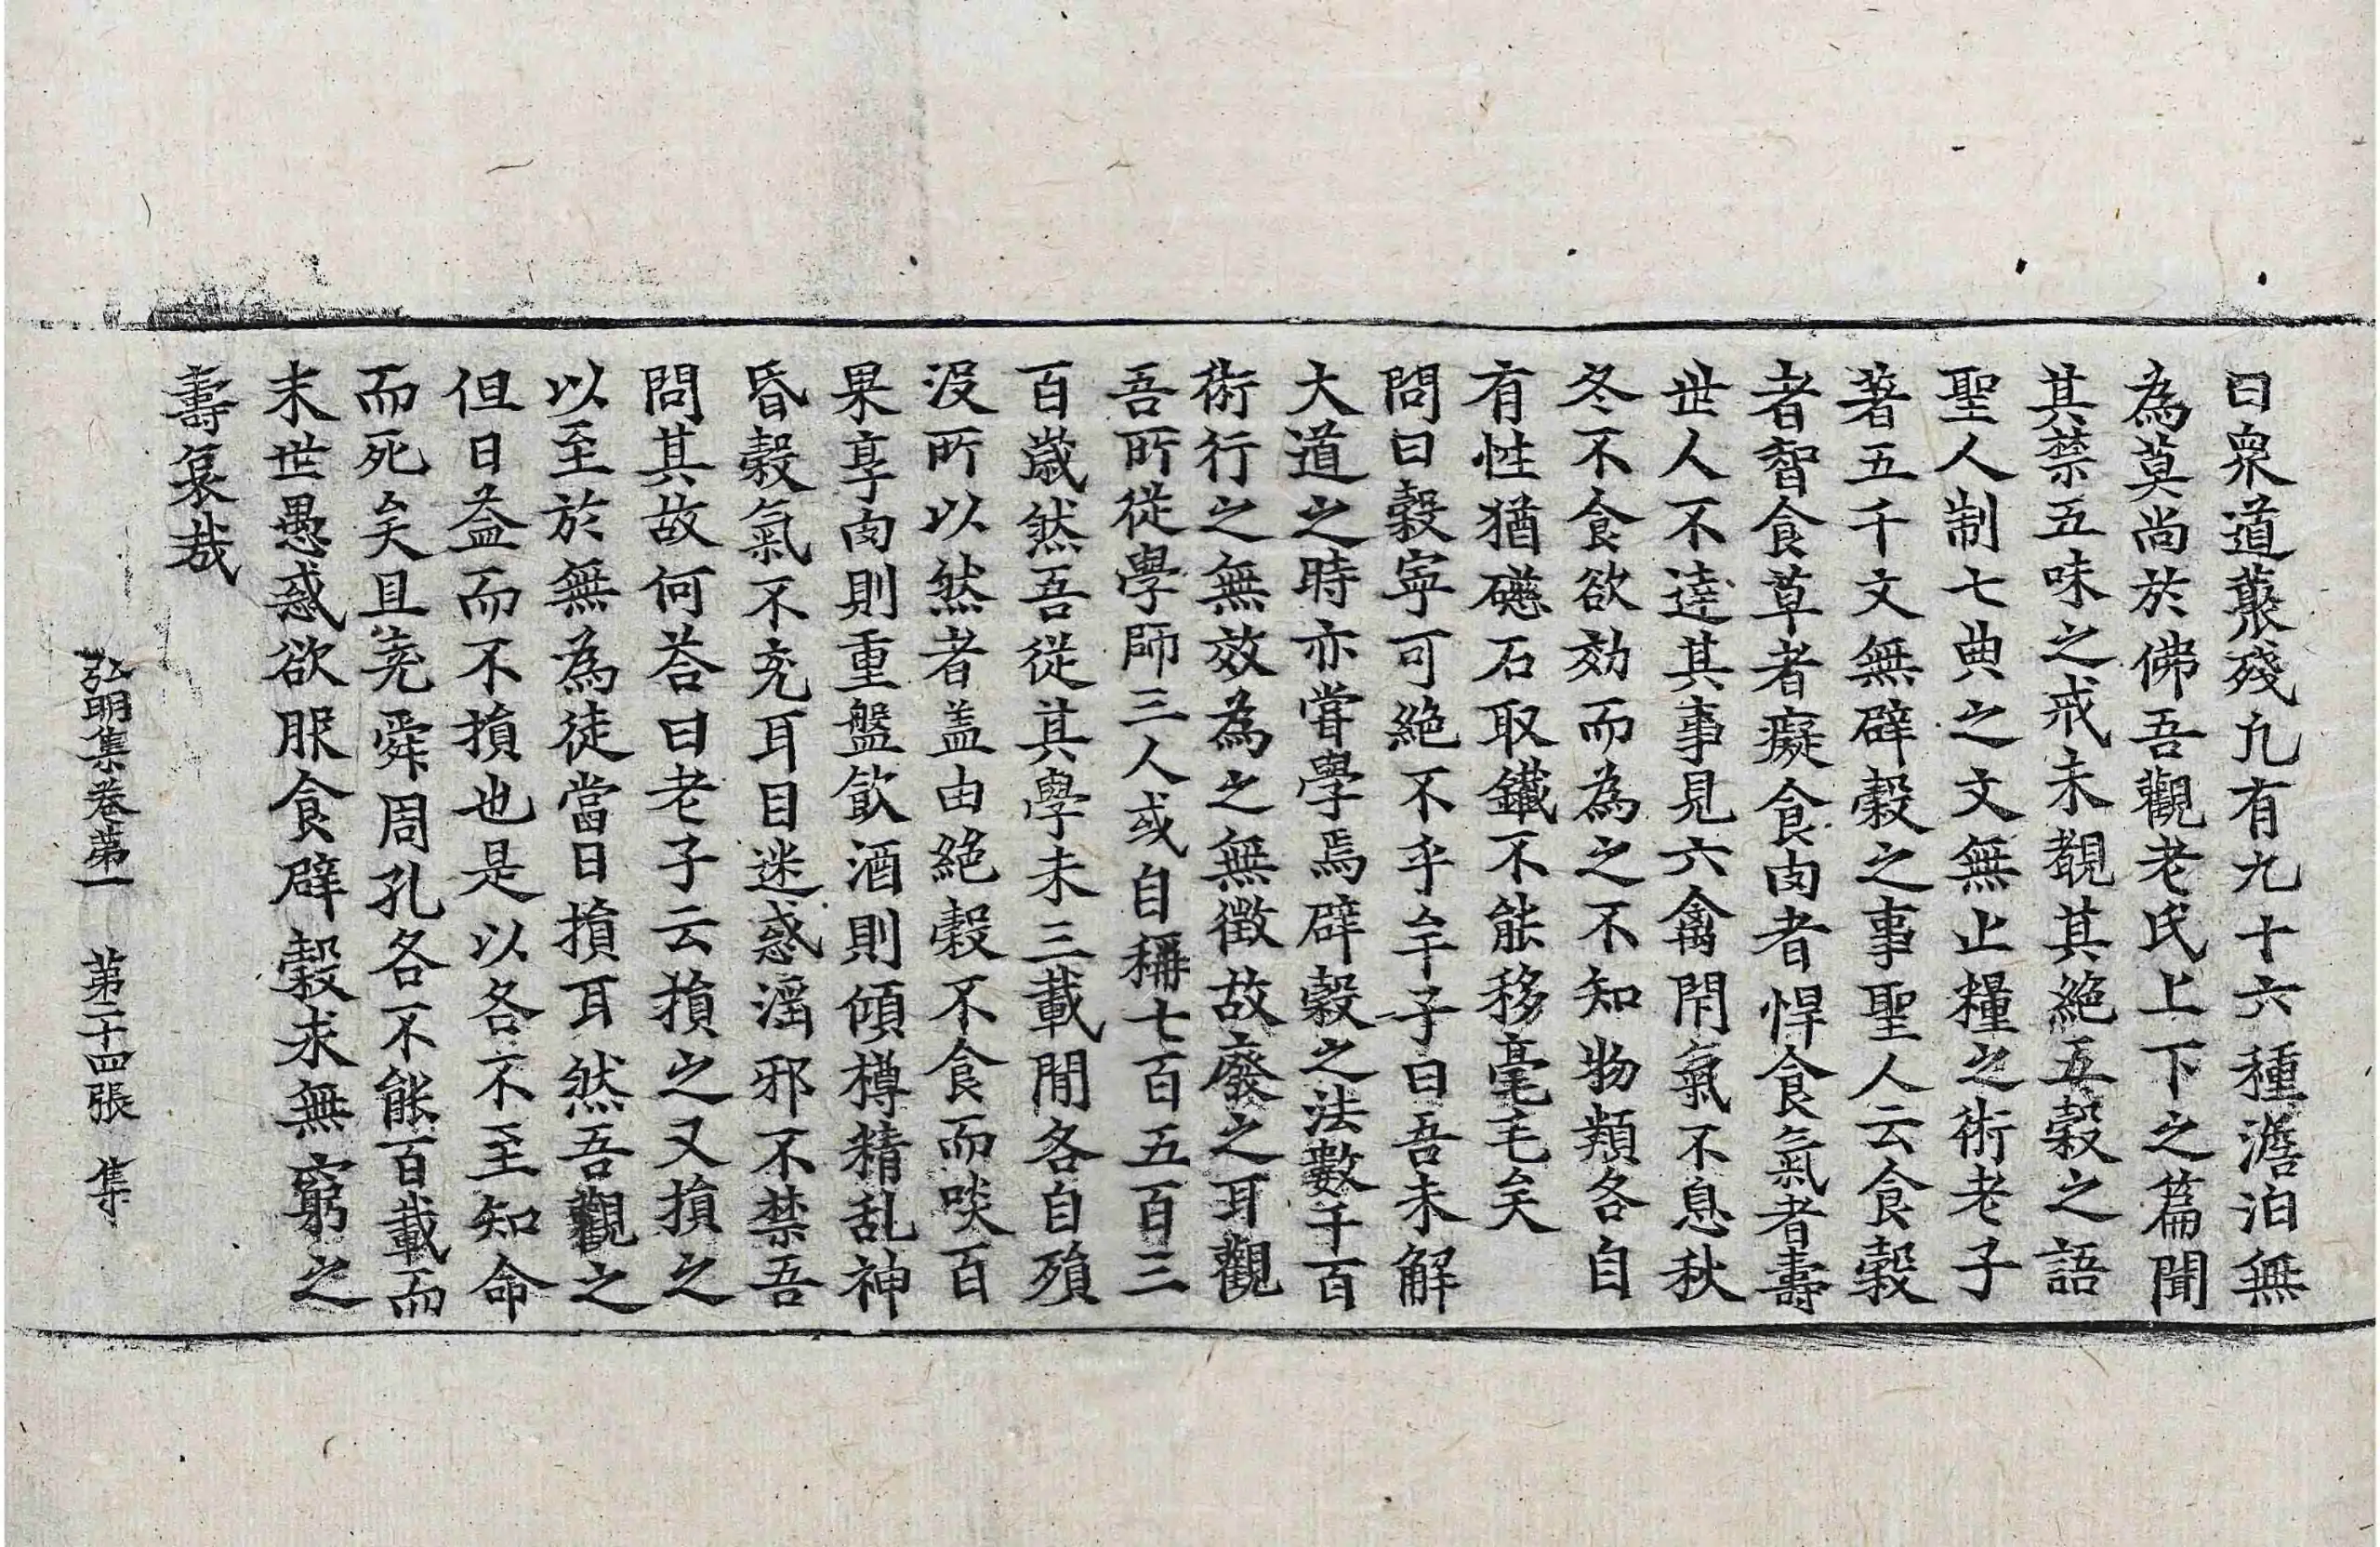 曰衆道藂殘九有九十六種澹泊無
為莫尚於佛吾觀老氏上下之篇聞
其禁五味之戒未覩其絶五穀之語
聖人制七典之文無止糧之術老子
著五千文無辟穀之事聖人云食穀
者智食草者癡食肉者悍食氣者壽
世人不達其事見六禽閇氣不息秋
冬不食欲効而為之不知物類各自
有性猶礠石取鐵不能移毫毛矣
問曰穀寧可絶不乎牟子曰吾未解
大道之時亦甞學焉辟穀之法數千百
術行之無效為之無徵故廢之耳觀
吾所從學師三人或自稱七百五百三
百歲然吾從其學未三載間各自殞
沒所以然者盖由絶穀不食而啖百
果享肉則重盤飲酒則傾樽精乱神
昏穀氣不充耳目迷惑滛邪不禁吾
問其故何荅曰老子云損之又損之
以至於無為徒當日損耳然吾觀之
但日益而不損也是以各不至知命
而死矣且堯舜周孔各不能百載而
末世愚惑欲服食辟穀求無窮之
壽哀哉
弘明集卷第一　第二十四張　集